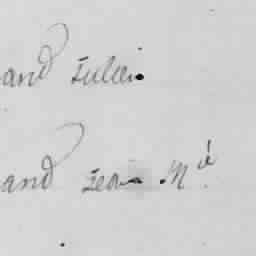 and Julien
and Jean Mie